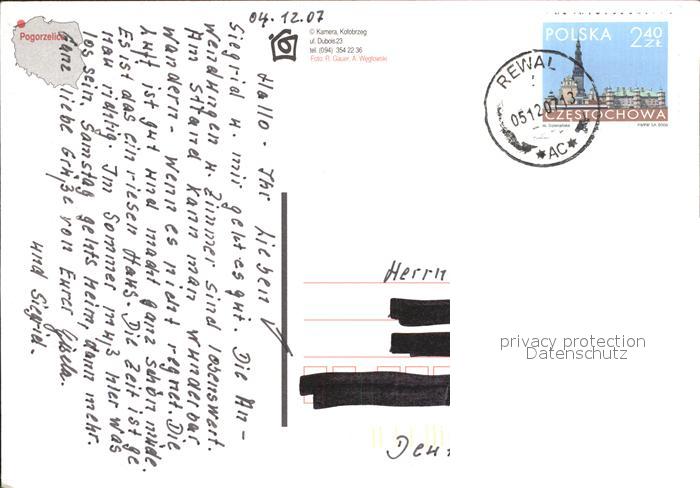 04.12.07
Hallo - Ihr Lieben
Siegrid u. mir geht es gut. Die An-
wendungen u. Zimmer sind lobenswert.
Am Strand kann man wunderbar
wandern - wenn es nicht regnet. Die
Luft ist gut und macht ganz schön müde.
Es ist das ein riesen Haus. Die Zeit ist ge
man ruhig. Im Sommer muß hier was
los sein. Samstag gehts heim, dann mehr.
Ganz liebe Grüße von Eurer Gisela.
und Siegrid.
Pogorzelica
© Kamera, Kołobrzeg
ul. Dubois23
tel. (094) 354 22 36
Foto: R. Gauer, A. Węglowski
POLSKA 2,40 ZŁ
CZĘSTOCHOWA
PWPW SA 2005
REWAL
05.12.07.13
*AC*
Herrn
privacy protection
Datenschutz